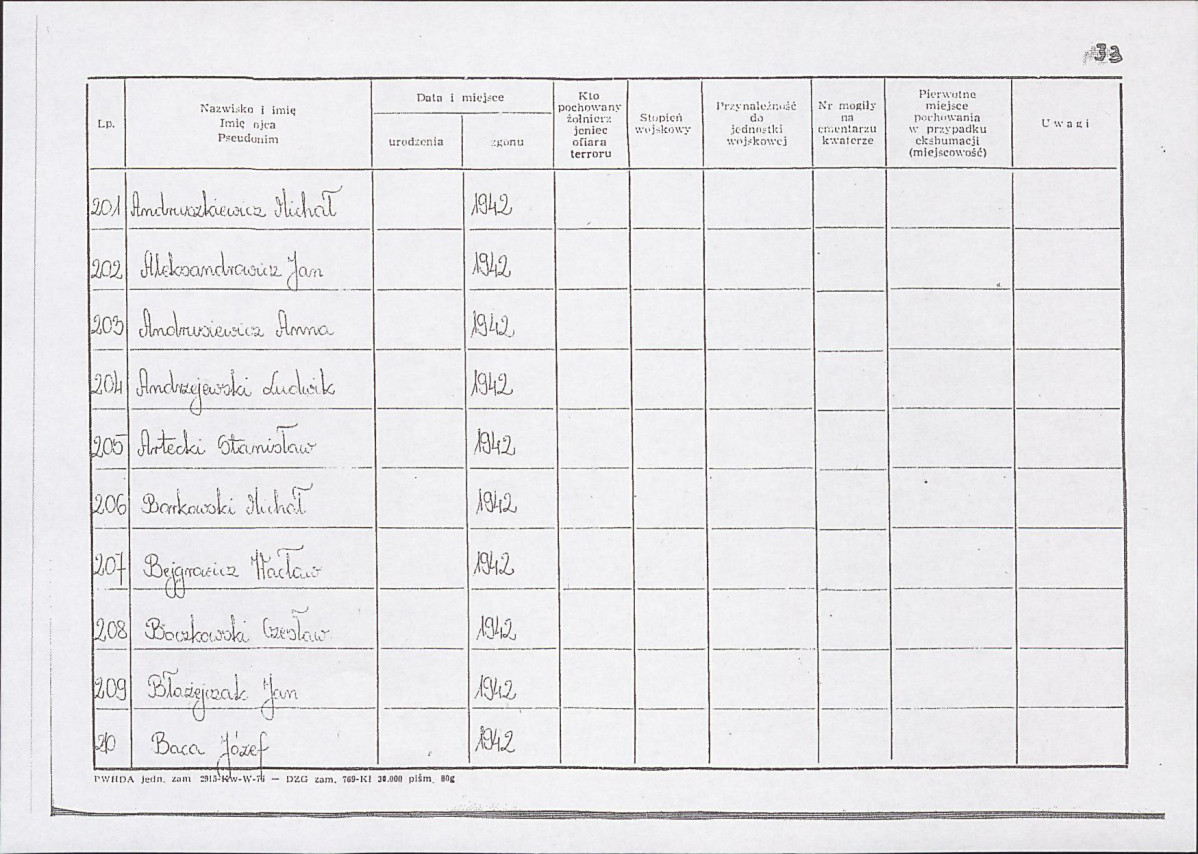 33
Lp.
Nazwisko i imię
Imię ojca
Pseudonim
Data i miejsce
urodzenia
zgonu
Kto
pochowany
żołnierz
jeniec
ofiara
terroru
Stopień
wojskowy
Przynależność
do
jednostki
wojskowej
Nr mogiły
na
cmentarzu
kwaterze
Pierwotne
miejsce
pochowania
w przypadku
ekshumacji
(miejscowość)
Uwagi
201 Andruszkiewicz Michał 1942
202 Aleksandrowicz Jan 1942
203 Andrusiewicz Anna 1942
204 Andrzejewski Ludwik 1942
205 Artecki Stanisław 1942
206 Bankowski Michał 1942
207 Wacław 1942
208 Boczkowski Czesław 1942
209 Błażejczak Jan 1942
210 Baca Józef 1942
PWHDA jedn. zam 2915-Kw-W-76 — DZG zam. 769-KI 30.000 piśm. 80g